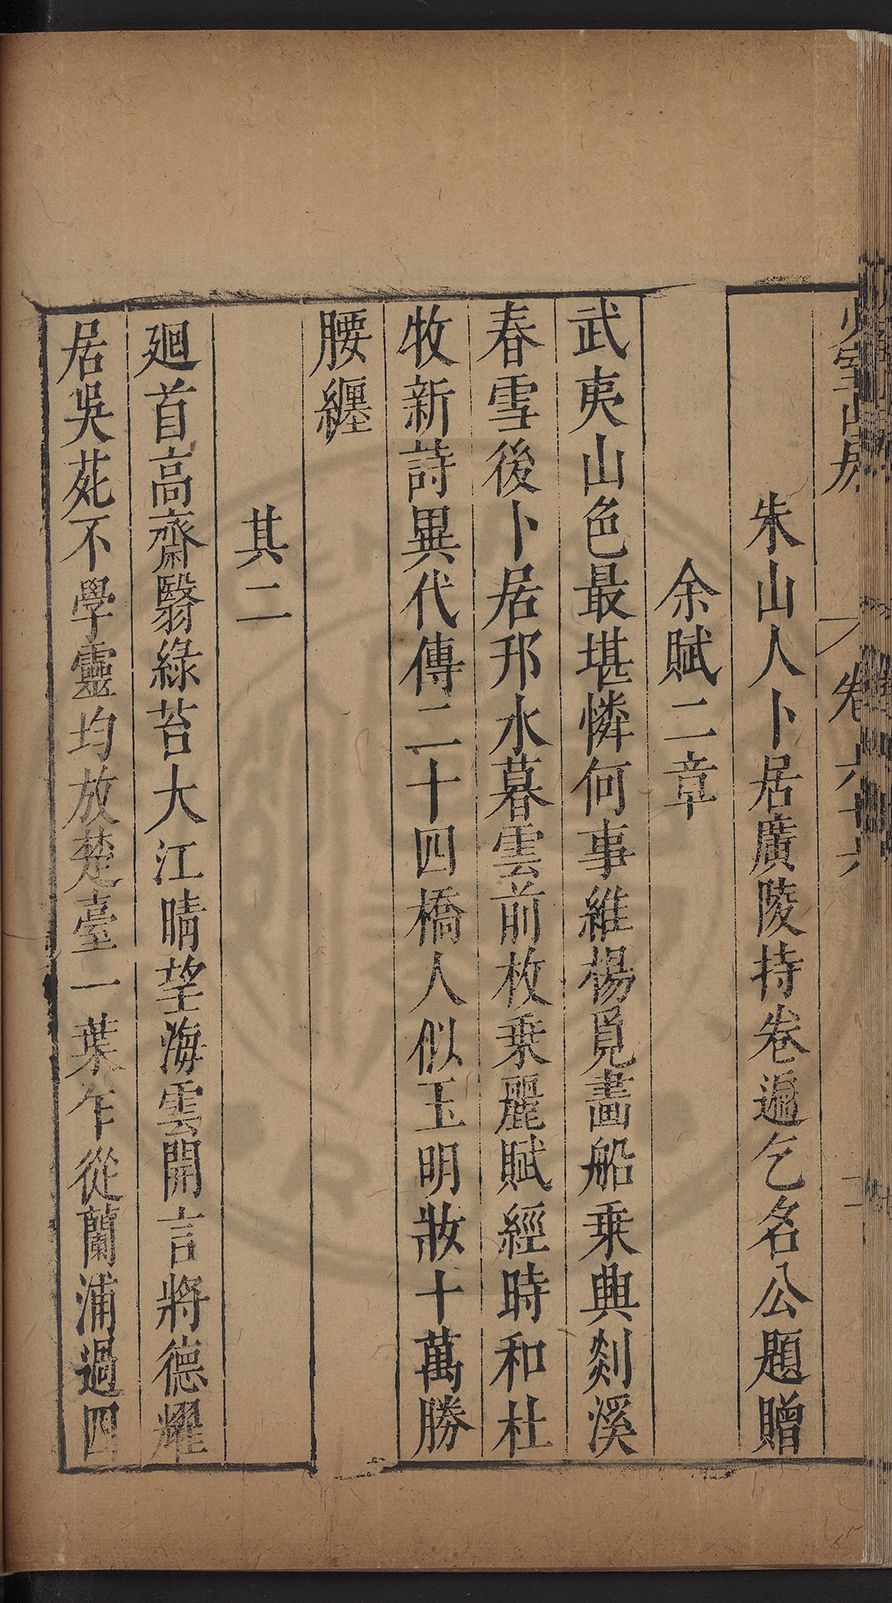 少室山房
卷六十六
朱山人卜居廣陵持卷遍乞名公題贈
余賦二章
武夷山色最堪憐何事維楊覓畵船乗興剡溪
春雪後卜居邗水暮雲前枚乗麗賦經時和杜
牧新詩異代傳二十四橋人似玉明妝十萬勝
腰纏
其二
廻首高齋翳綠苔大江晴望海雲開言將德耀
居吳苑不學靈均放楚臺一葉乍從蘭浦過四